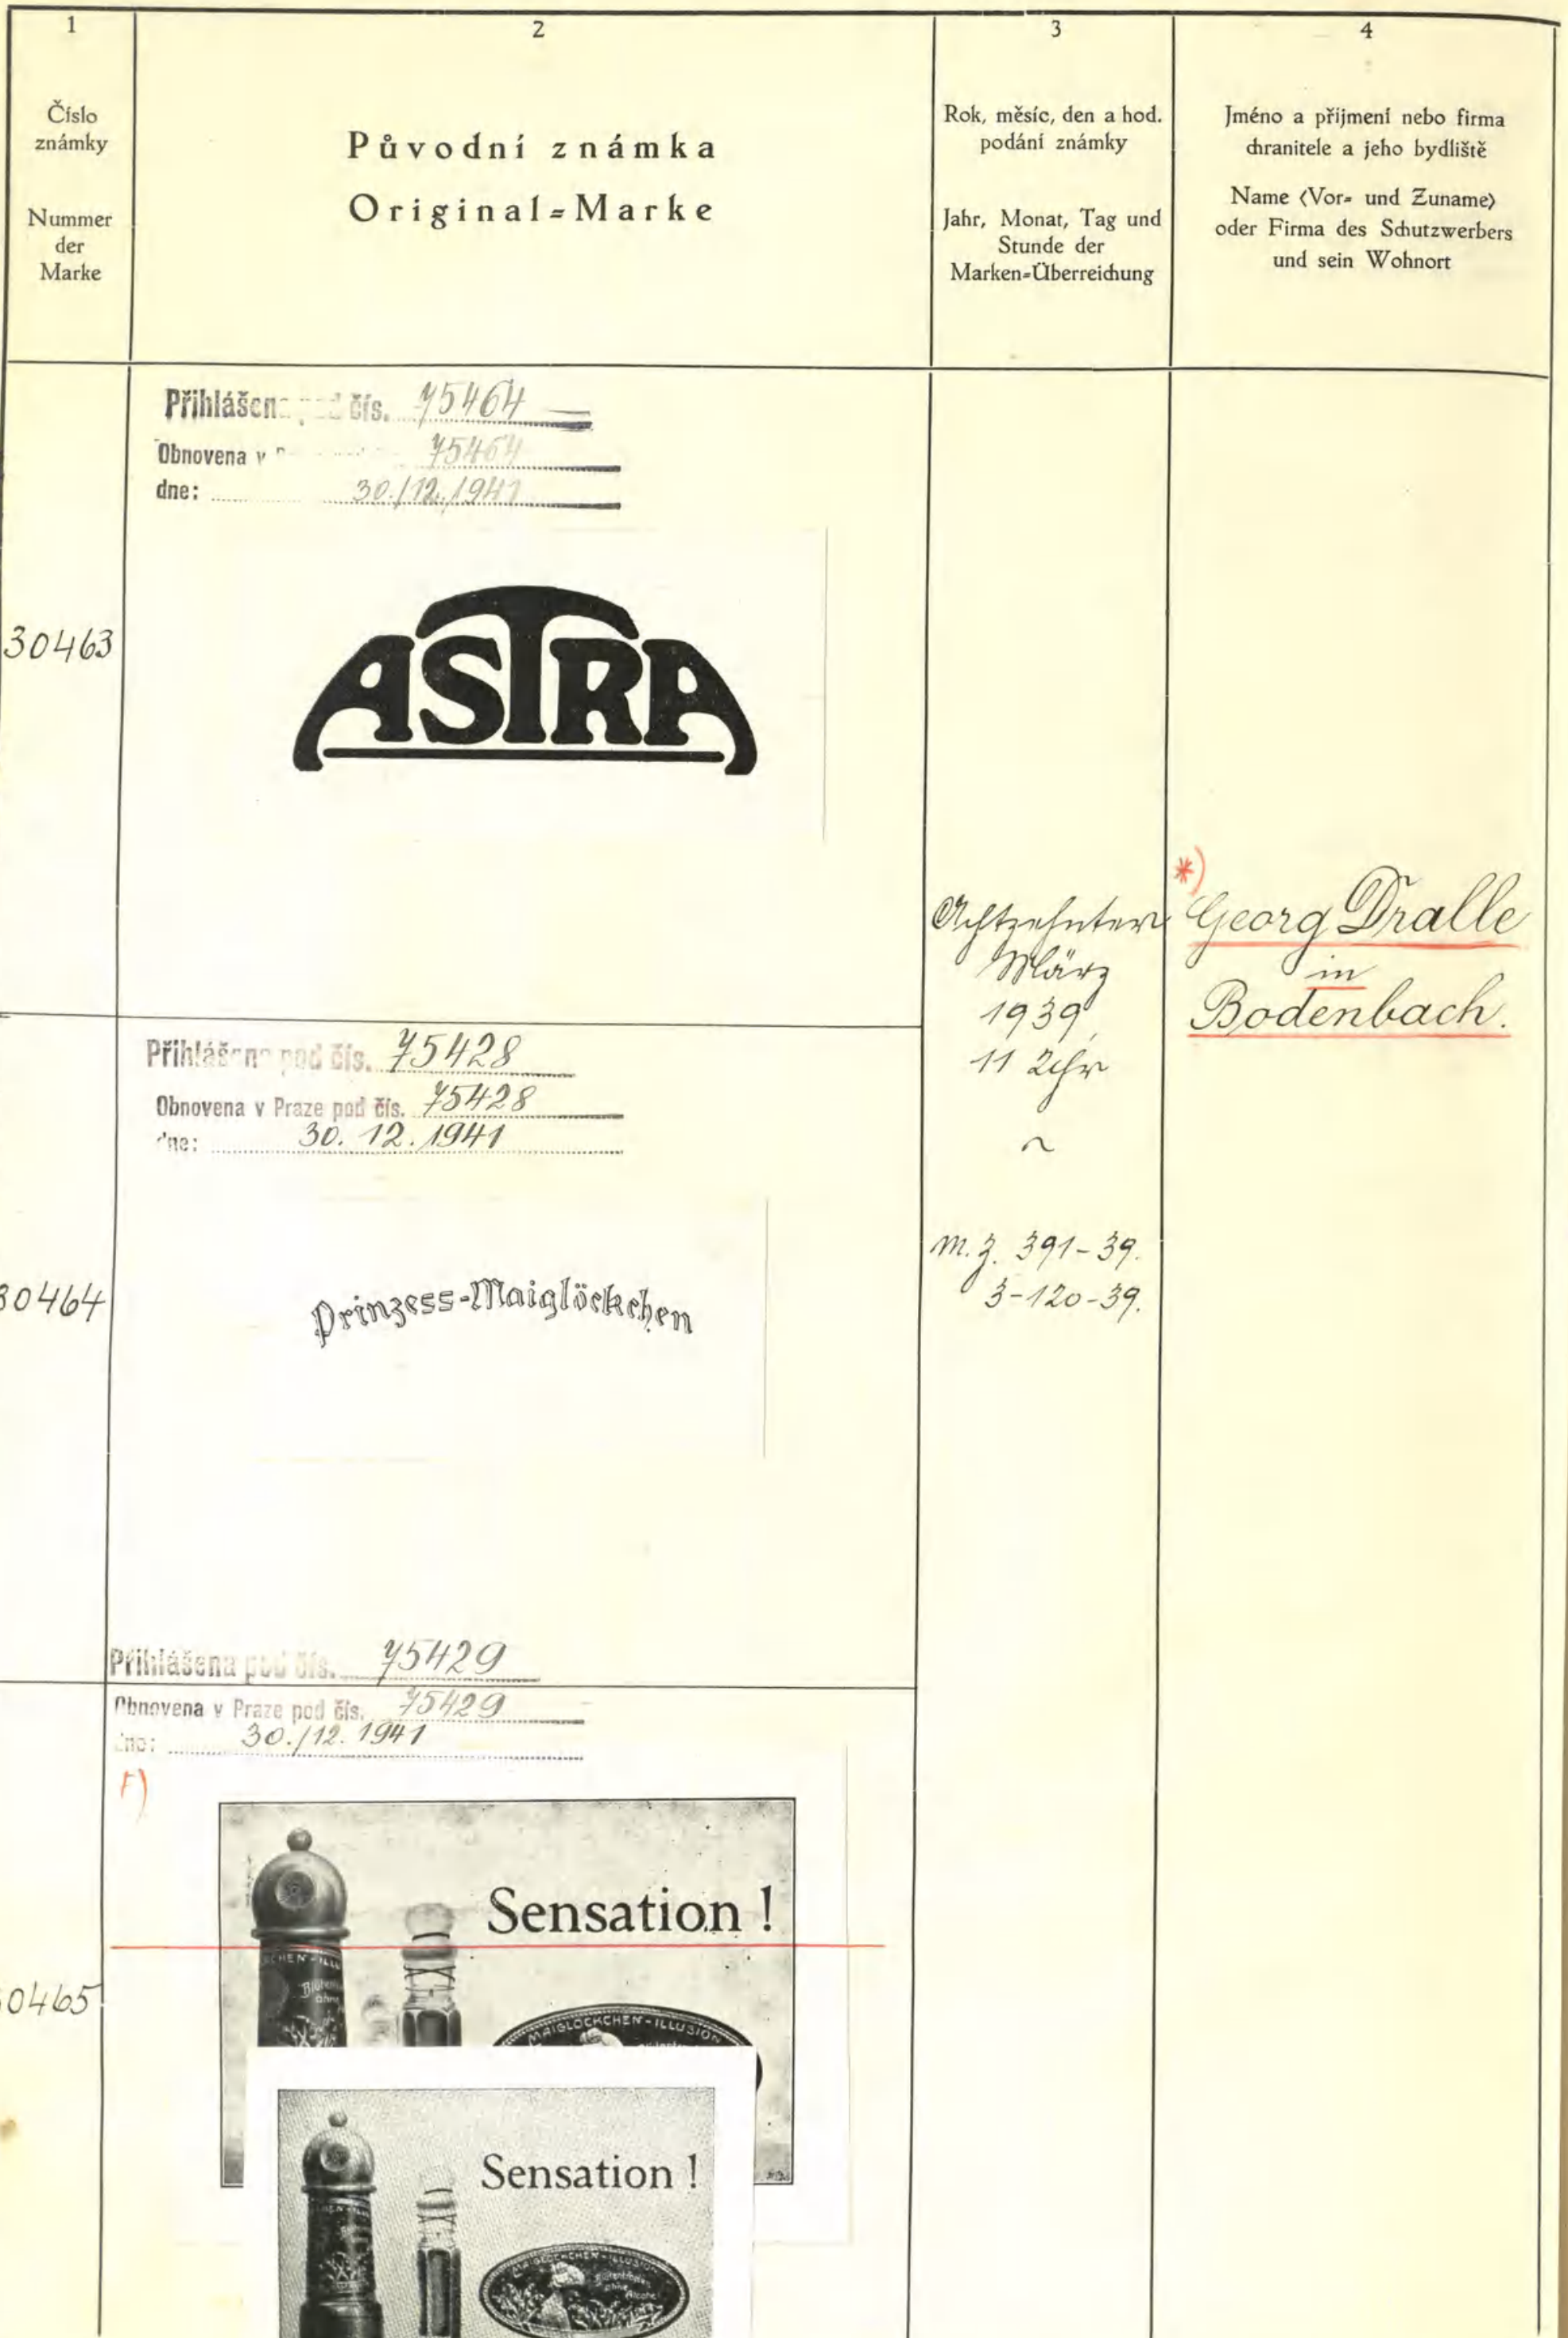 1
2
3
4
Číslo
známky
Nummer
der
Marke
Původní známka
Original=Marke
Rok, měsíc, den a hod.
podání známky
Jahr, Monat, Tag und
Stunde der
Marken=Überreichung
Jméno a přijmení nebo firma
chranitele a jeho bydliště
Name (Vor= und Zuname)
oder Firma des Schutzwerbers
und sein Wohnort
Přihlášena pod čís. 75464
Obnovena v 75464
dne: 30./12.1941
30463
ASTRA
Achtzehnter
März
1939,
11 Uhr
M.Z. 391-39.
3-120-39.
*)
Georg Dralle
in
Bodenbach.
Přihlášena pod čís. 75428
Obnovena v Praze pod čís. 75428
dne: 30. 12. 1941
30464
Prinzess-Maiglöckchen
Přihlášena pod čís. 75429
Obnovena v Praze pod čís. 75429
dne: 30./12. 1941
0465
Sensation !
MAIGLÖCKCHEN-ILLUSION
Sensation !
MAIGLÖCKCHEN-ILLUSION
Blütentropfen
ohne
Alcohol